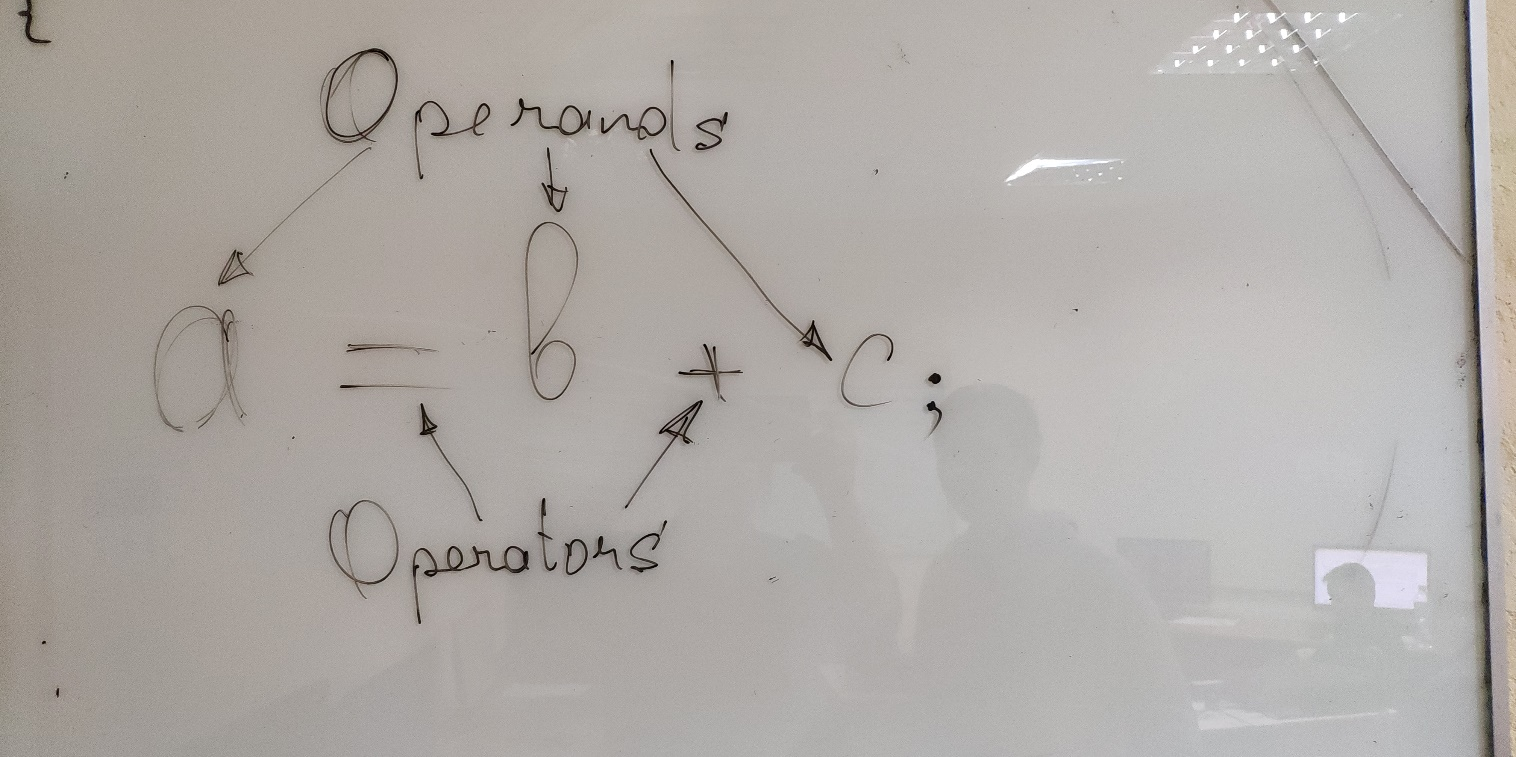 {
Operands
a = b + c;
Operators